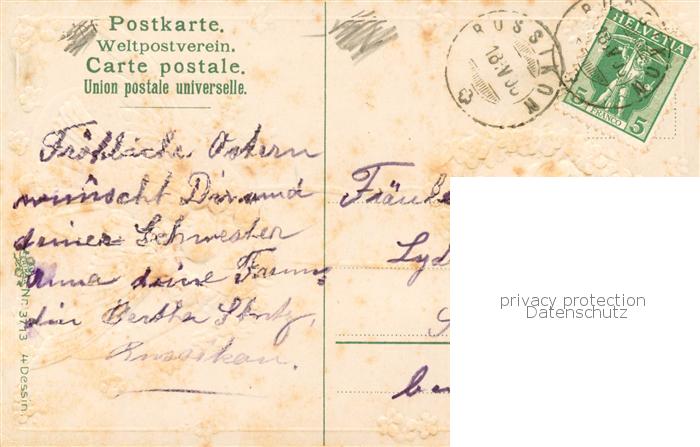 Postkarte.
Weltpostverein.
Carte postale.
Union postale universelle.
RUSSIKON
HELVETIA
5 FRANCO 5
Fröhliche Ostern
wünscht Dir und
deiner Schwester
Anna deine Freun=
din Bertha
Russikon.
Nr. 3713 4 Dessin.
Fräule
Lyd
be
privacy protection
Datenschutz